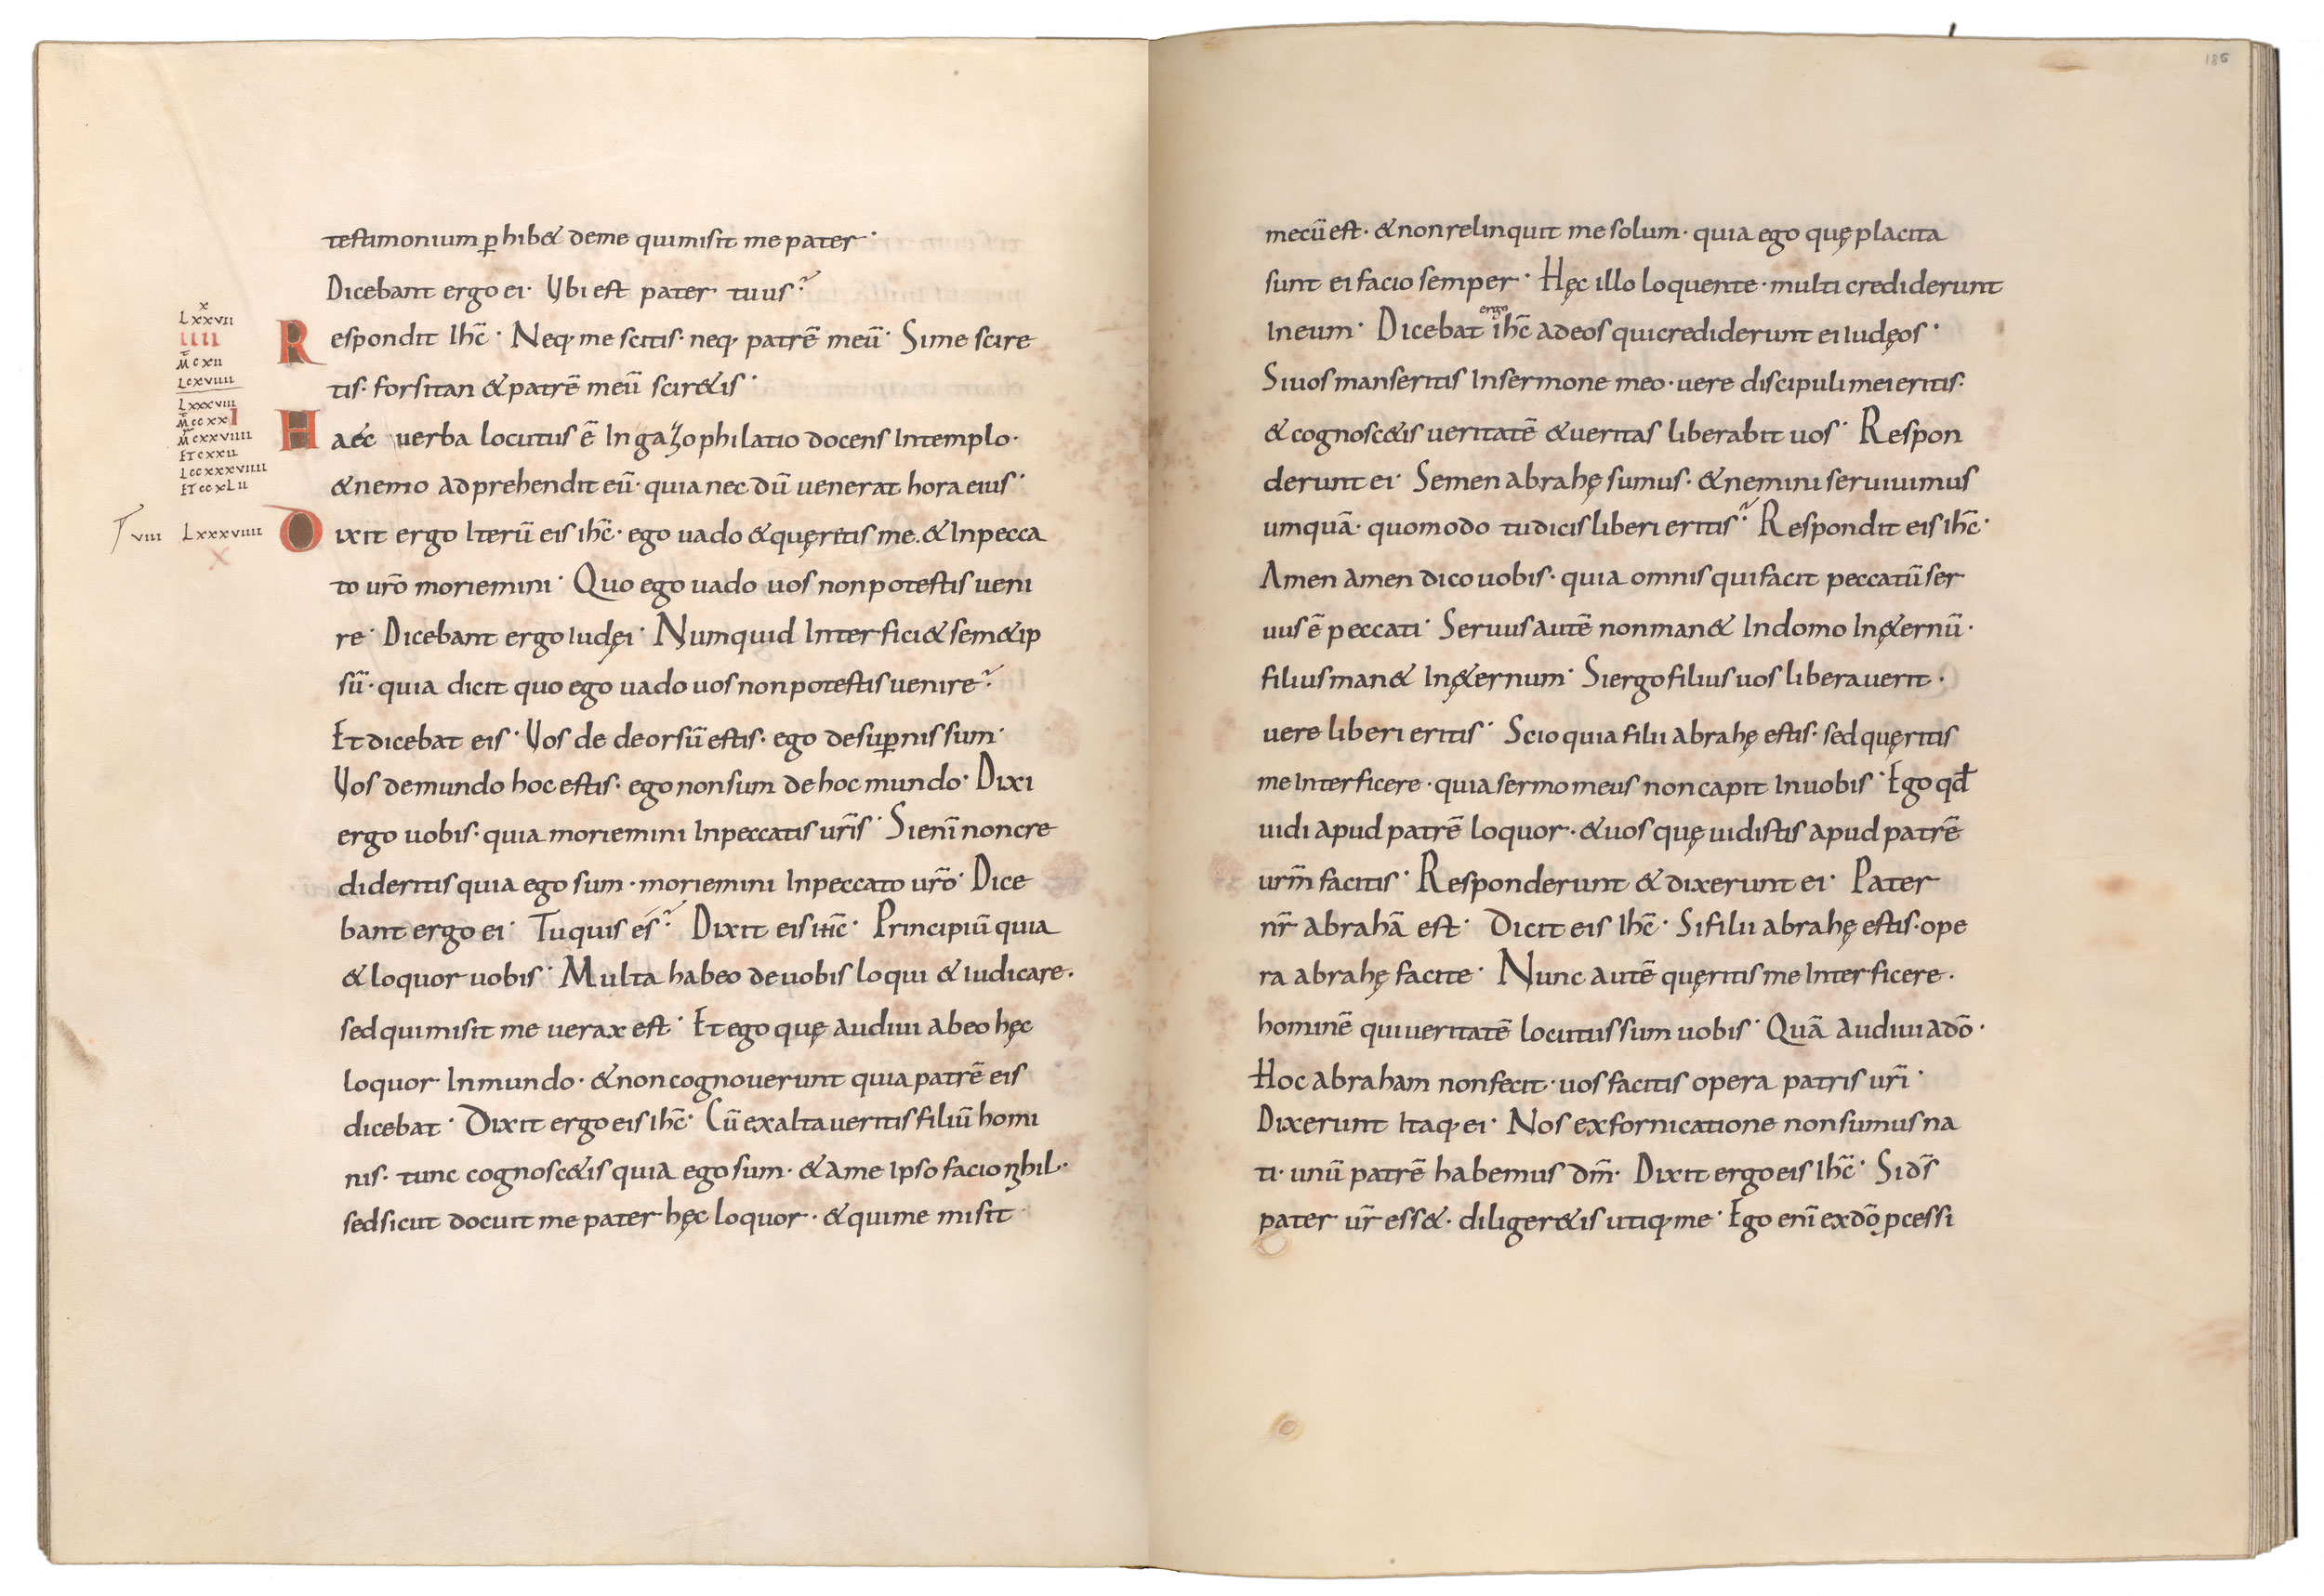 testimonium ꝑhib& deme quimisit me pater·
Dicebant ergo ei· Ubi est pater tuus?
x
Lxxvii
iiii
Respondit Ihc̄· Neq; me scitis· neq; patrē meū· Sime scire
M̄cxii
Lcxviiii
tis· forsitan & patrē meū scir&is·
Lxxxviii
M̄ccxxi
Haec uerba locutus ē In gazophilatio docens Intemplo·
M̄cxxviiii
ETcxxii
Lccxxxviiii
ETccxLii
& nemo adprehendit eū· quia nec dū uenerat hora eius·
viii Lxxxviiii
Dixit ergo Iterū eis ihc̄· ego uado & quęretis me. & Inpecca
x
to ur̄o moriemini· Quo ego uado uos nonpotestis ueni
re· Dicebant ergo iudęi· Numquid Interfici& sem&ip
sū· quia dicit quo ego uado uos nonpotestis uenire?
Et dicebat eis· Uos de deorsū estis· ego desuꝑnis sum·
Uos demundo hoc estis· ego nonsum de hoc mundo· Dixi
ergo uobis· quia moriemini Inpeccatis ur̄is· Si enī noncre
dideritis quia ego sum· moriemini Inpeccato ur̄o· Dice
bant ergo ei· Tu quis es? Dixit eis ihc̄· Principiū quia
& loquor uobis· Multa habeo deuobis loqui & iudicare·
sed quimisit me uerax est· Et ego quę audiui abeo hęc
loquor Inmundo· & noncognouerunt quia patrē eis
dicebat· Dixit ergo eis ihc̄· Cū exaltaueritis filiū homi
nis· tunc cognosc&is quia ego sum· & ame Ipso facio nihil·
sedsicut docuit me pater hęc loquor· & quime misit
186
mecū est· & nonrelinquit me solum· quia ego quę placita
sunt ei facio semper· Hęc illo loquente· multi crediderunt
Ineum· Dicebat ergo ihc̄ adeos quicrediderunt ei iudęos·
Siuos manseritis Insermone meo· uere discipuli mei eritis·
& cognosc&is ueritatē & ueritas liberabit uos· Respon
derunt ei· Semen abrahę sumus· & nemini seruiuimus
umquā· quomodo tudicis liberi eritis? Respondit eis ihc̄·
Amen amen dico uobis· quia omnis quifacit peccatū ser
uus ē peccati· Seruus autē nonman& Indomo In&̨ernū·
filius man& In&̨ernum· Siergo filius uos liberauerit·
uere liberi eritis· Scio quia filii abrahę estis· sed quęritis
me Interficere· quia sermo meus noncapit Inuobis· Ego qđ
uidi apud patrē loquor· & uos quę uidistis apud patrē
ur̄m facitis· Responderunt & dixerunt ei· Pater
nr̄ abrahā est· Dicit eis Ihc̄· Si filii abrahę estis· ope
ra abrahę facite· Nunc autē quęritis me Interficere·
hominē qui ueritatē locutus sum uobis· Quā audiui adō·
Hoc abraham nonfecit· uos facitis opera patris ur̄i·
Dixerunt Itaq; ei· Nos exfornicatione nonsumus na
ti· unū patrē habemus dm̄· Dixit ergo eis Ihc̄· Si ds̄
pater ur̄ ess&· diliger&is utiq; me· Ego enī exdō ꝓcessi